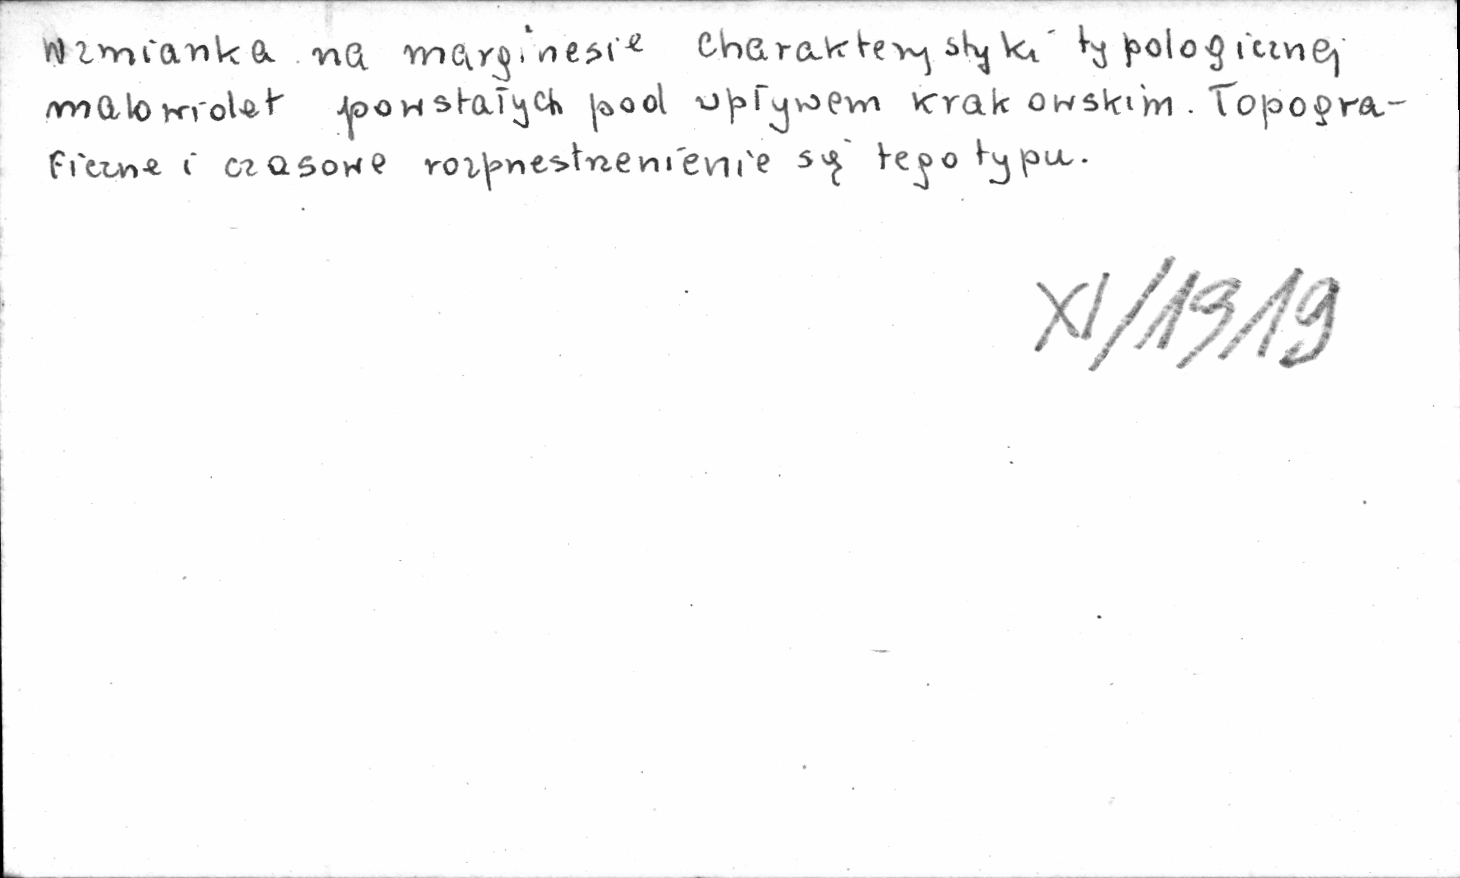 Wzmianka na marginesie charakterystyki typologicznej
malowideł powstałych pod wpływem krakowskim. Topogra-
ficzne i czasowe rozprzestrzenienie się tego typu.
XI/1919